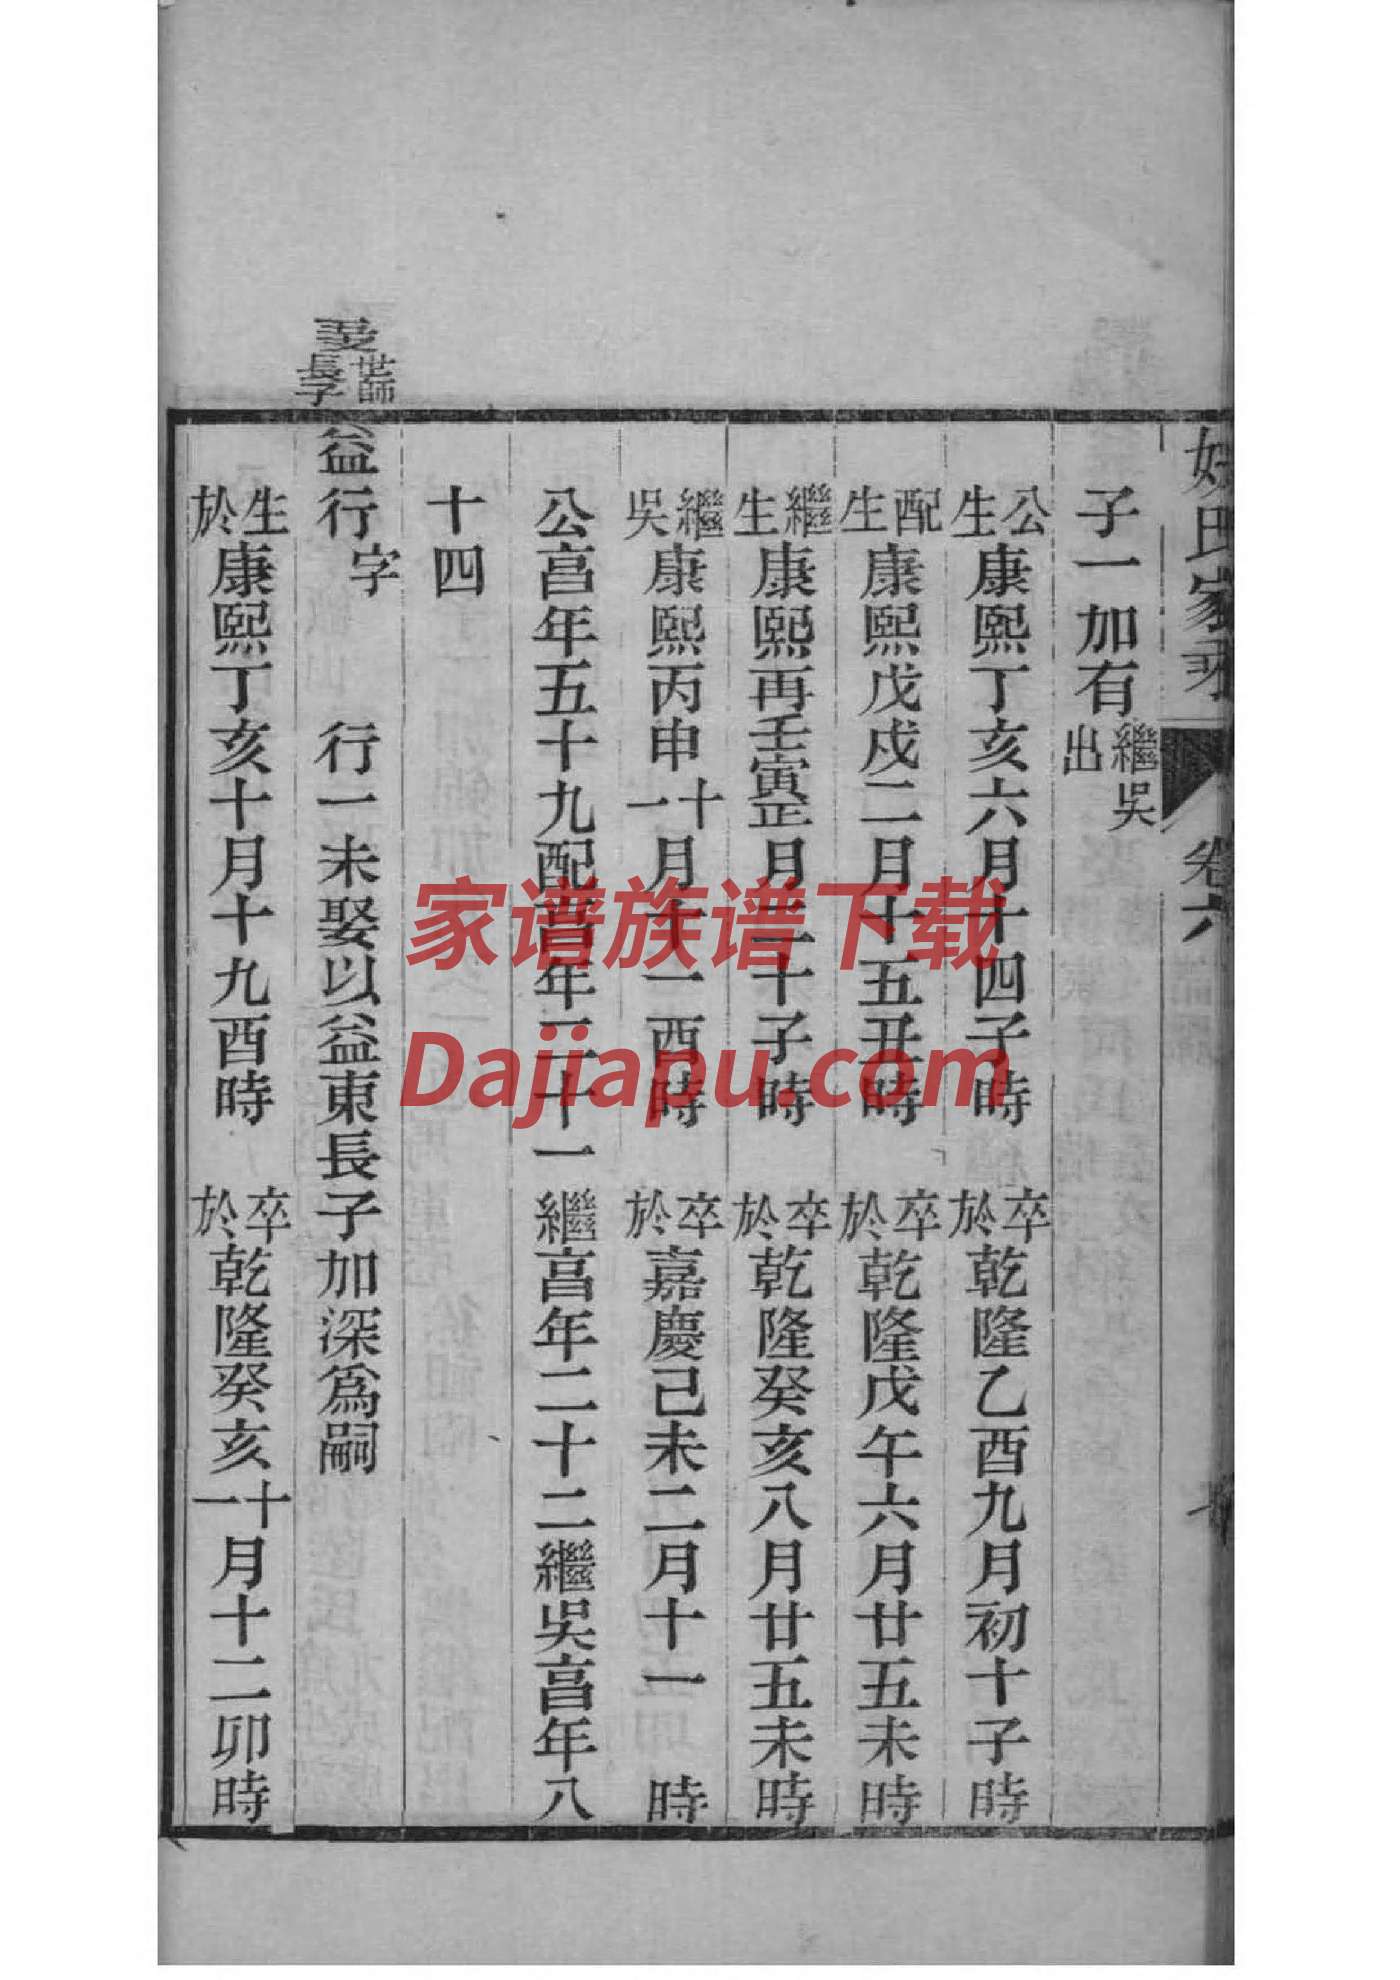 氏家 卷六
子一加有繼吳出
公生康熙丁亥六月十四子時 卒於乾隆乙酉九月初十子時
配生康熙戊戌二月十五丑時 卒於乾隆戊午六月廿五未時
繼生康熙再壬寅正月二十子時 卒於乾隆癸亥八月廿五未時
繼吳康熙丙申十一月十一酉時 卒於嘉慶己未二月十一 時
公亯年五十九配亯年二十一 繼亯年二十二繼吳亯年八
十四
世師長子益行字 行一未娶以益東長子加深爲嗣
生於康熙丁亥十月十九酉時 卒於乾隆癸亥十一月十二卯時
家谱族谱下载
Dajiapu.com